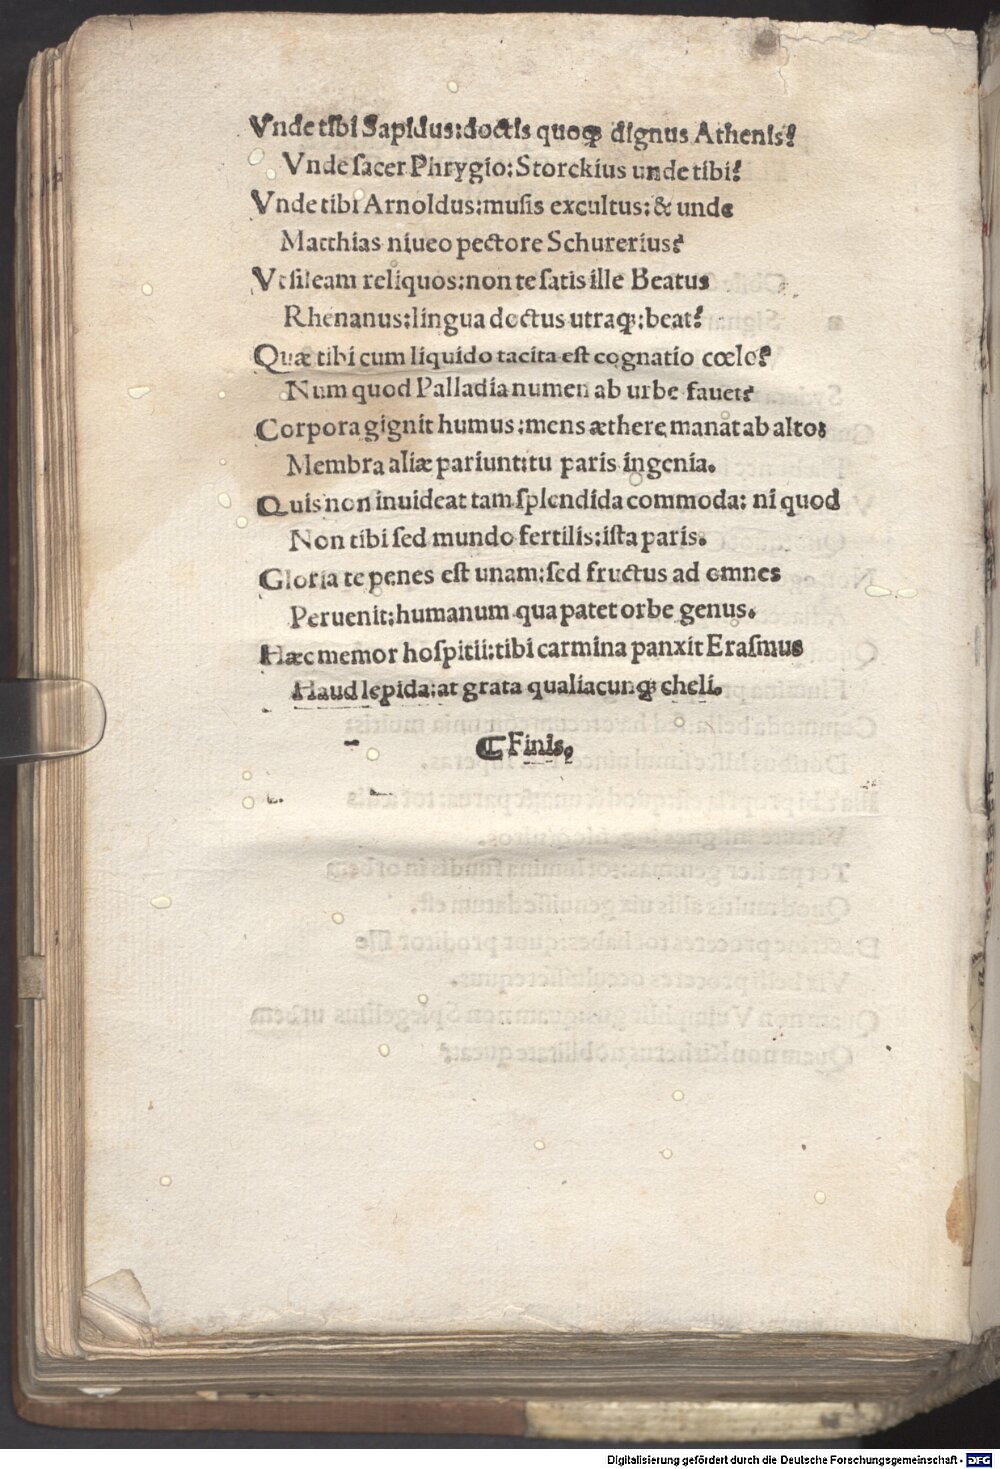 Vnde tibi Sapidus:doctis quoqꝫ dignus Athenis?
Vnde ſacer Phrygio:Storckius unde tibi?
Vnde tibi Arnoldus:muſis excultus:& unde
Matthias niueo pectore Schurerius?
Vt ſileam reliquos:non te ſatis ille Beatus
Rhenanus:lingua doctus utraqꝫ:beat?
Quæ tibi cum liquido tacita eſt cognatio cœlo?
Num quod Palladia numen ab urbe fauet?
Corpora gignit humus:mens æthere manat ab alto:
Membra aliæ pariunt:tu paris ingenia.
Quis non inuideat tam ſplendida commoda: ni quod
Non tibi ſed mundo fertilis:iſta paris.
Gloria te penes eſt unam:ſed fructus ad omnes
Peruenit:humanum qua patet orbe genus.
Hæc memor hoſpitii:tibi carmina panxit Eraſmus
Haud lepida:at grata qualiacunqꝫ cheli.
⁋ Finis.
Digitalisierung gefördert durch die Deutsche Forschungsgemeinschaft - DFG